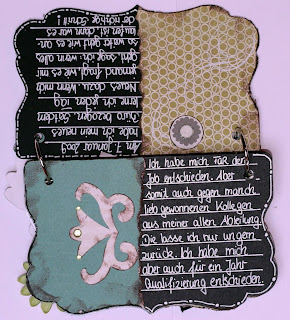 Am 7. Januar 2009
habe ich mein neues
Büro bezogen. Seitdem
lerne ich jeden Tag
Neues dazu. Wenn mich
jemand fragt, wie es mir
geht, sage ich: wenn alles
so weiter geht wie es an-
laufen ist, dann war es
der richtige Schritt!
Ich habe mich für den
Job entschieden. Aber
somit auch gegen manch
lieb gewonnenen Kollegen
aus meiner alten Abteilung.
Die lasse ich nur ungern
zurück. Ich habe mich
aber auch für ein Jahr
Qualifizierung entschieden.